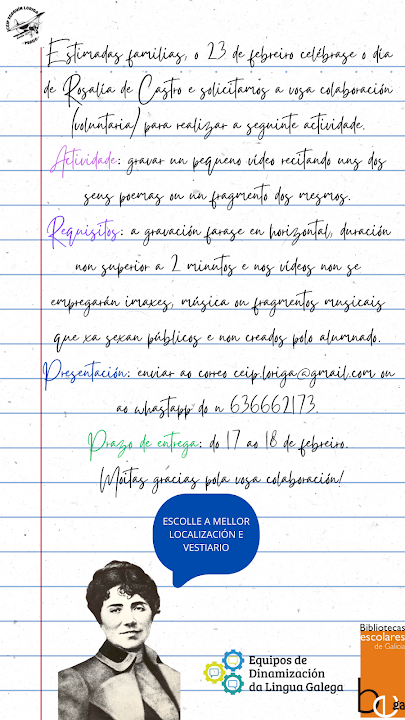 CEIP JOAQUÍN LORIGA
Estimadas familias, o 23 de febreiro celébrase o día
de Rosalía de Castro e solicitamos a vosa colaboración
(voluntaria) para realizar a seguinte actividade.
Actividade: gravar un pequeno vídeo recitando uns dos
seus poemas ou un fragmento dos mesmos.
Requisitos: a gravación farase en horizontal, duración
non superior a 2 minutos e nos vídeos non se
empregarán imaxes, música ou fragmentos musicais
que xa sexan públicos e non creados polo alumnado.
Presentación: enviar ao correo ceip.loriga@gmail.com ou
ao whastapp do n 636662173.
Prazo de entrega: do 17 ao 18 de febreiro.
Moitas grácias pola vosa colaboración!
ESCOLLE A MELLOR
LOCALIZACIÓN E
VESTIARIO
Equipos de
Dinamización
da Lingua Galega
Bibliotecas
escolares
de Galicia
bega